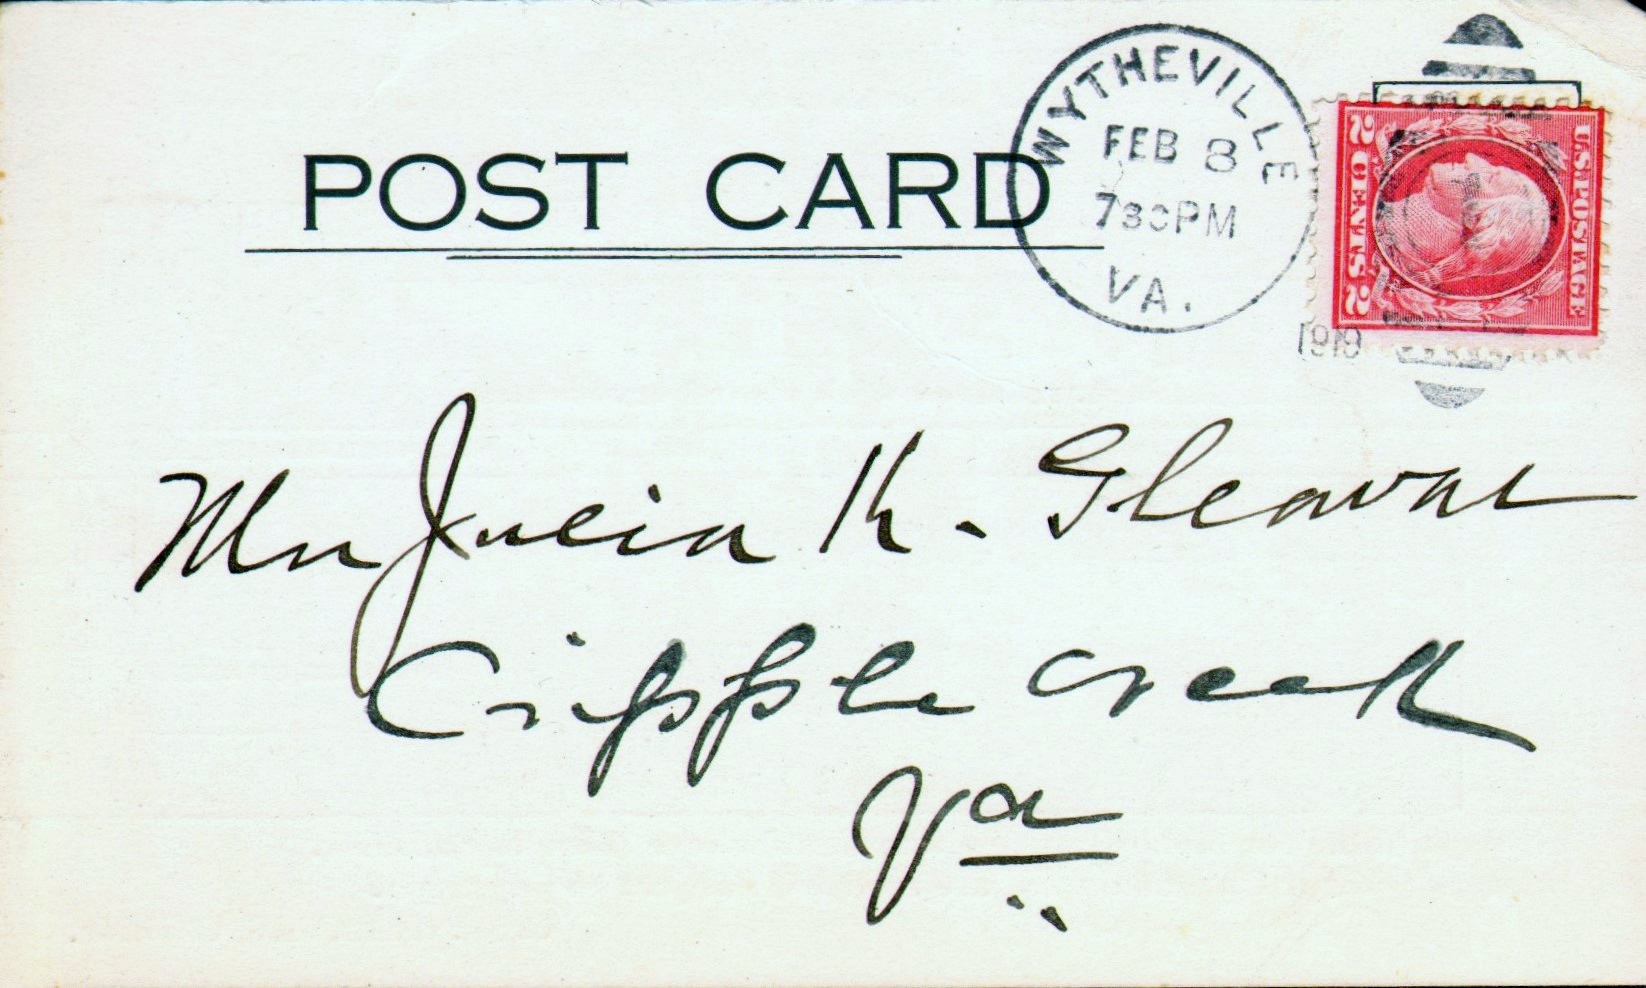 POST CARD
WYTHEVILLE
FEB 8
730PM
VA.
1918
U.S. POSTAGE
2 CENTS 2
Julia K. Gleaves
Cripple Creek
Va